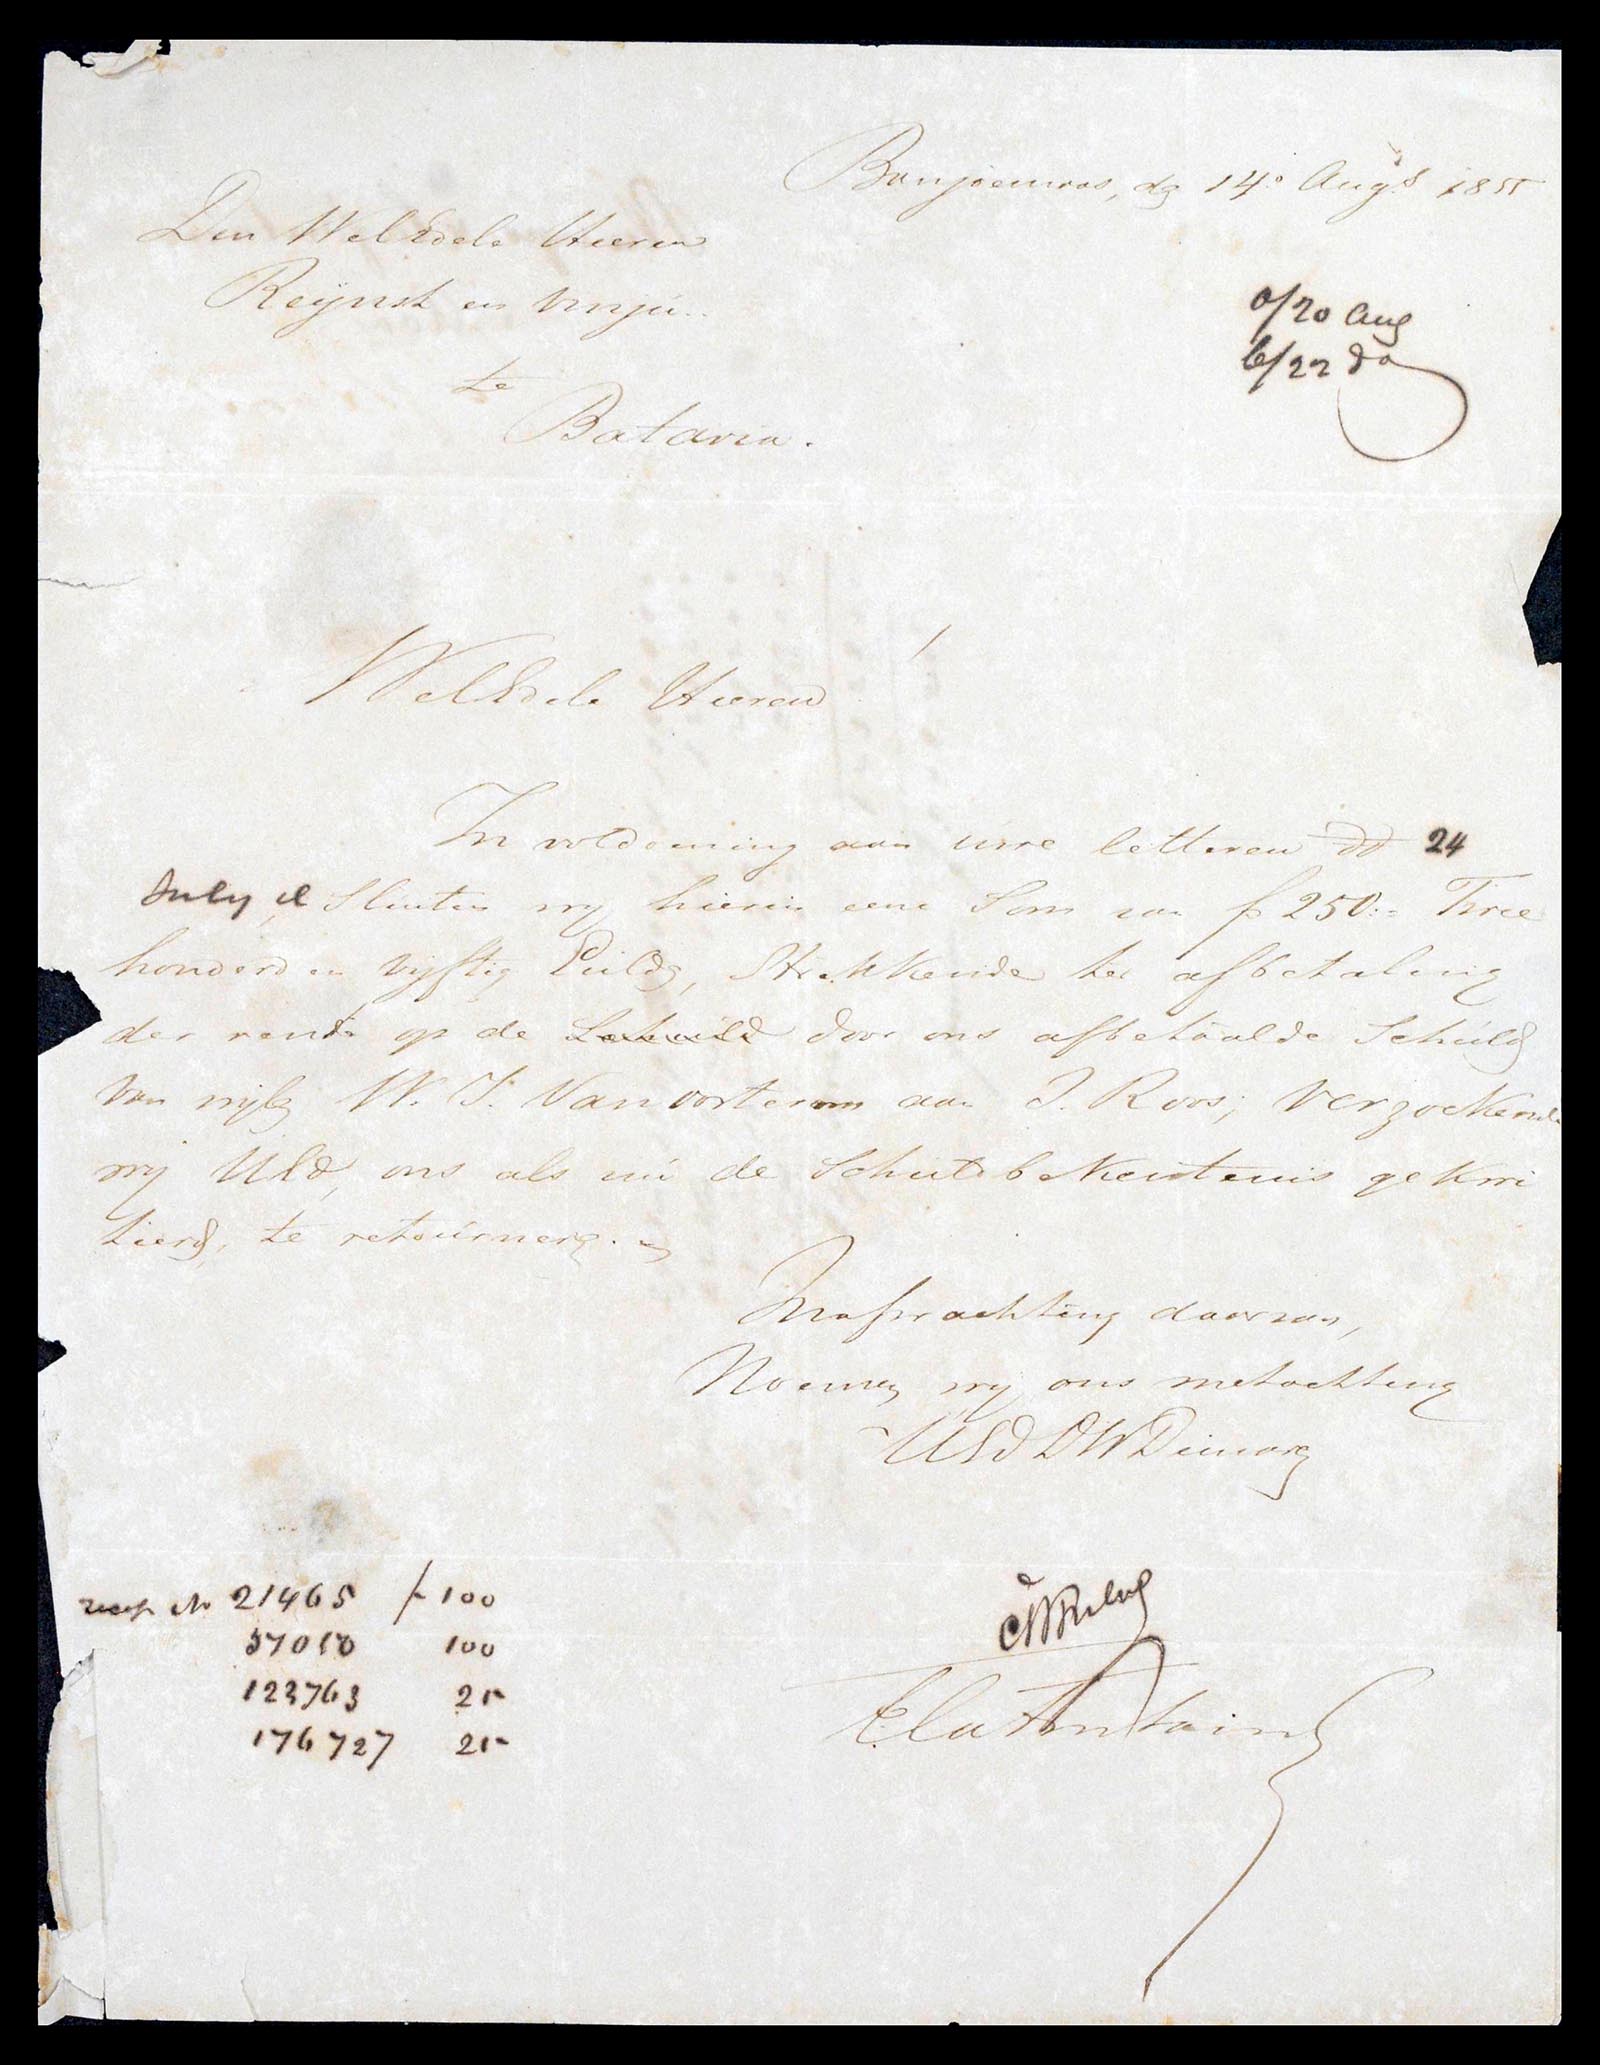 Banjoemaas, dg 14e Augs 1855
Den WelEdele Heeren
Reijnst en Vinju
te
Batavia.
o/20 Aug
b/22 do
WelEdele Heeren!
In voldoening aan Uwe letteren dd 24
July jl Sluiten wy hierin eene Som van ƒ 250.= Twee
honderd en vyftig Guldg, Strekkende ter afbetaling
der rente op de Schuld door ons afbetaalde Schuldg
van wijlg W. J. Van oosterom aan J. Roos; verzoekende
wy UEd, ons als nu de Schuldbekentenis gekwi
tierd, te retournerg.
In afwachting daarvan,
Noemen wy ons met achting
UEd DW Dienarg
E La Fontaine
recep No 21465 ƒ 100
57010 100
123763 25
176727 25